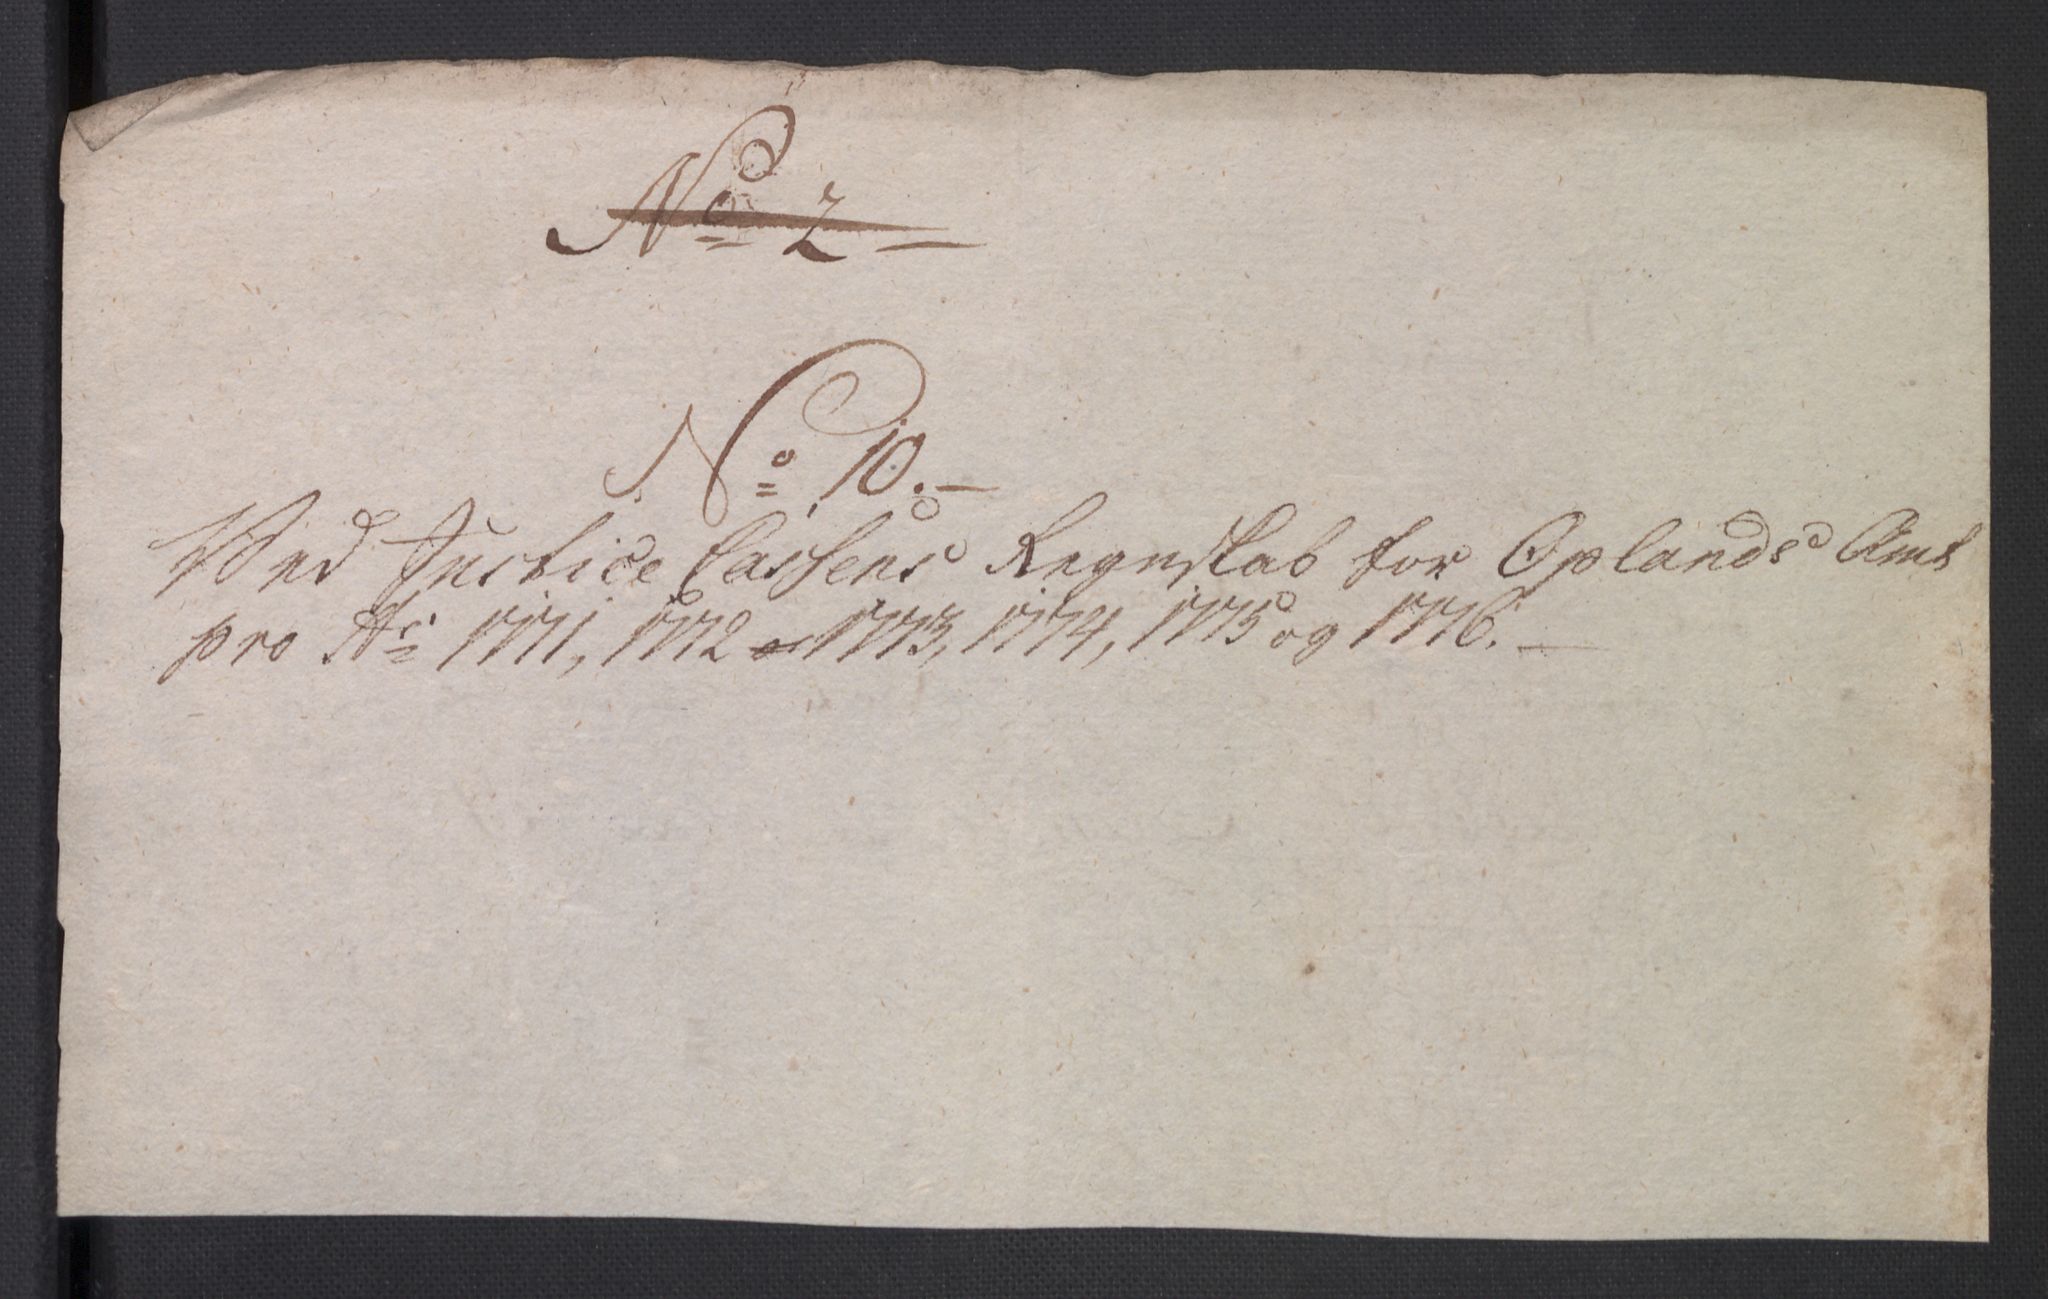 No 2 —
No 10. —
Ved Justice Cassens Regnskab for Oplands Amt
pro Ao 1771, 1772 1773, 1774, 1775 og 1776. —